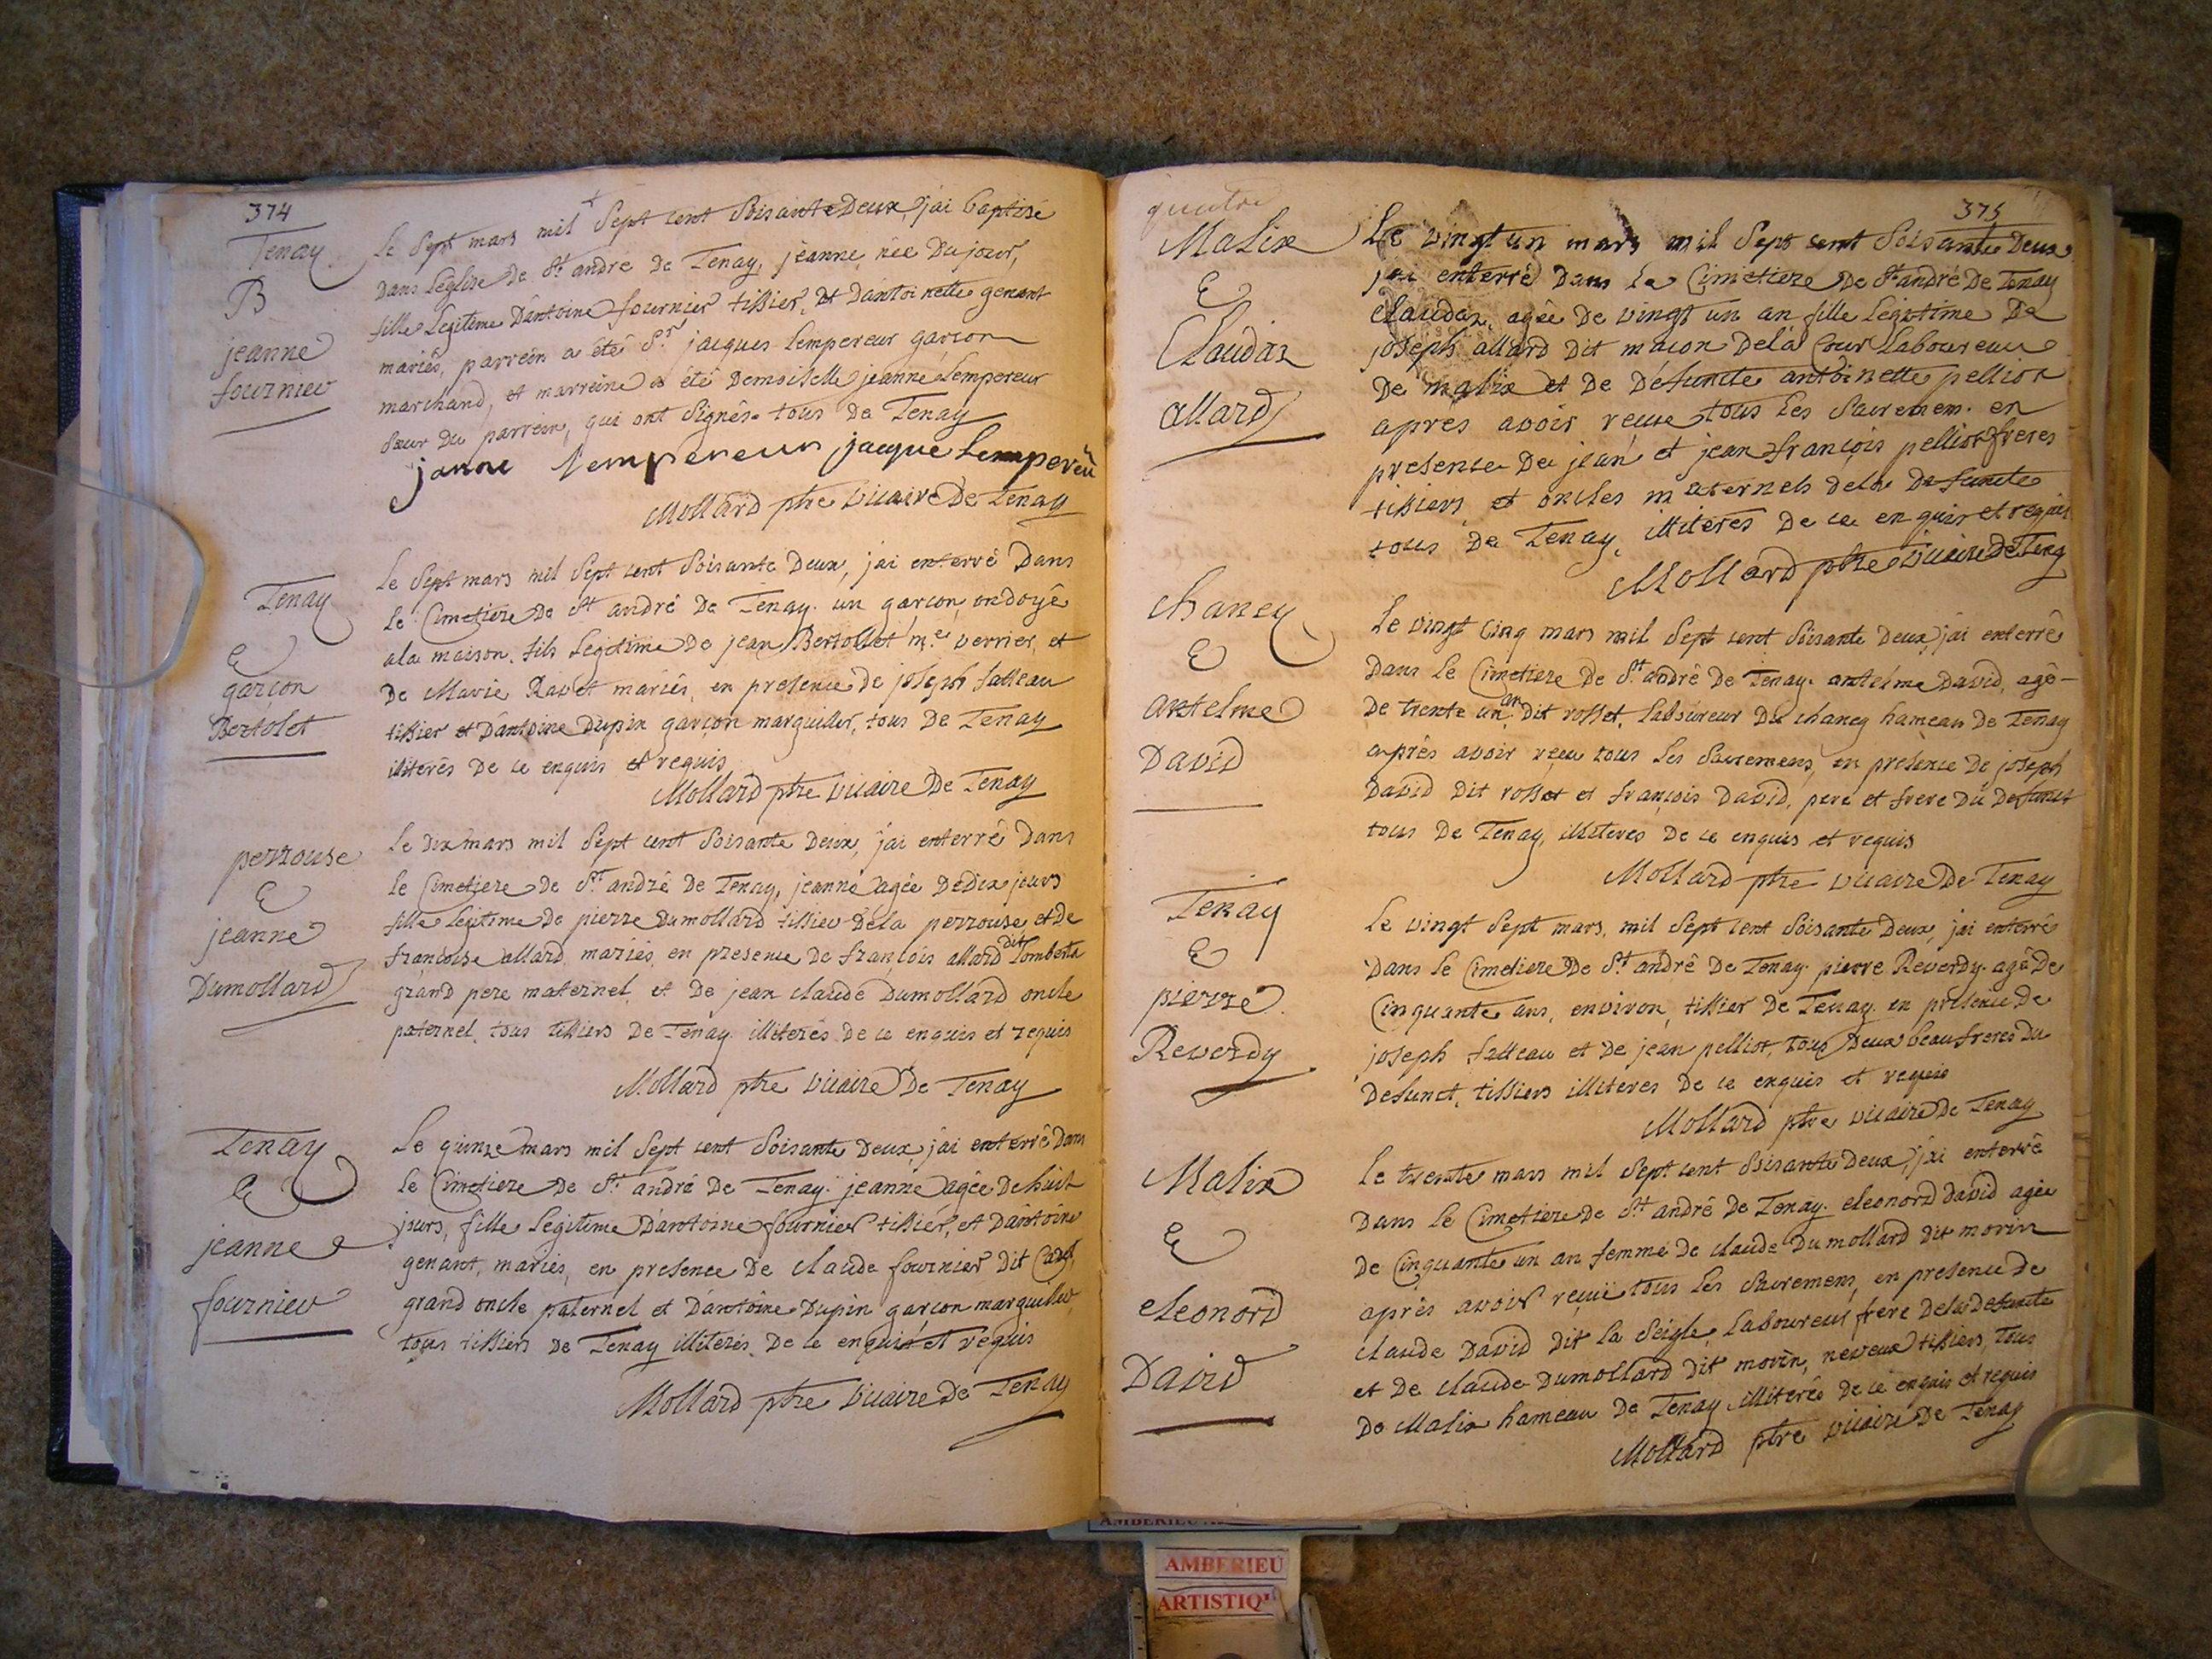 374
Tenay
B
jeanne
fournier
Le Sept mars mil Sept cent Soisante Deux, j'ai baptisé
Dans L'eglise de St andre De Tenay, jeanne, née Du jour,
fille Legitime D'antoine fournier tissier, et D'antoinette genant
mariés, parrein a été Sr jacques Lempereur garcon
marchand, et marreine a été Demoiselle jeanne Lempereur
Sœur du parrein, qui ont Signés. tous De Tenay
janne Lempereur jacque Lempereu
Mollard ptre vicaire De Tenay
Tenay
E
garçon
Bertolet
Le Sept mars mil Sept cent Soisante Deux, j'ai enterré Dans
Le Cimetiere De St andré De Tenay. un garçon ondoyé
a la maison. fils Legitime De jean Bertollet me verrier, et
De Marie Ravet mariés, en presence de joseph falleau
tissier et D'antoine Dupin garçon marguiller, tous De Tenay
illiterés De ce enquis et requis
Mollard ptre vicaire De Tenay
perrouse
E
jeanne
Dumollard
Le Dix mars mil Sept cent Soisante Deux, j'ai enterré Dans
le Cimetiere De St andré De Tenay, jeanne agée De dix jours
fille Legitime De pierre Dumollard tissier De la perrouse, et de
francoise allard mariés, en presence De françois allard dit Lombeta
grand pere maternel, et De jean claude Dumollard oncle
paternel, tous tissiers De Tenay. illiterés De ce enquis et requis
Mollard ptre vicaire De Tenay
Tenay
E
jeanne
fournier
Le quinze mars mil Sept cent Soisante Deux, j'ai enterré Dans
le Cimetiere De St andré De Tenay. jeanne agée De huit
jours, fille Legitime D'antoine fournier tissier, et D'antoine
genant, mariés, en presence De claude fournier Dit
grand oncle paternel et D'antoine Dupin garçon marguiller,
tous tissiers De Tenay illiterés De ce enquis et requis
Mollard ptre vicaire De Tenay
quatre
375
Malix
E
Claudaz
allard
Le vingt un mars mil Sept cent Soisante Deux
j'ai enterré Dans Le Cimetiere De St andré De Tenay
Claudaz, agée De vingt un an fille Legitime De
joseph allard Dit macon De la Cour Laboureur
De malix et De Defuncte antoinette pelliot
après avoir receue tous Les Sacremem. en
presence De jean et jean francois pelliot freres
tissiers, et oncles maternels De la Defuncte
tous De Tenay, illiterés De ce enquis et requis
Mollard ptre vicaire De Teny
Chaney
E
antelme
David
Le vingt Cinq mars mil Sept cent Soisante Deux, j'ai enterré
Dans Le Cimetiere De St andré De Tenay. antelme David, agé
De trente un an Dit rosset, Laboureur De chaney hameau De Tenay
après avoir reçu tous Les Sacremens, en presence De joseph
David Dit rosset et françois David, pere et frere Du Defunct
tous De Tenay, illiteres De ce enquis et requis
Mollard ptre vicaire De Tenay
Tenay
E
pierre
Reverdy
Le vingt Sept mars. mil Sept cent Soisante Deux, j'ai enterré
Dans Le Cimetiere De St andré De Tenay. pierre Reverdy. agé De
Cinquante ans, environ, tissier De Tenay. en presence De
joseph falleau et De jean pelliot, tous Deux beaufreres Du
Defunct, tissiers illiteres De ce enquis et requis
Mollard ptre vicaire De Tenay
Malix
E
eleonord
David
Le trente mars mil Sept cent Soisante Deux, j'ai enterré
Dans Le Cimetiere De St andré De Tenay. eleonord David agée
De Cinquante un an femme De claude Dumollard Dit morin
après avoir reçüe tous Les Sacremens, en presence De
claude David Dit La Seigle, Laboureur frere De la Defuncte
et De claude Dumollard Dit morin, neveux tissiers, tous
De Malix hameau De Tenay illiterés De ce enquis et requis
Mollard ptre vicaire De Tenay
AMBERIEU
ARTISTIQU